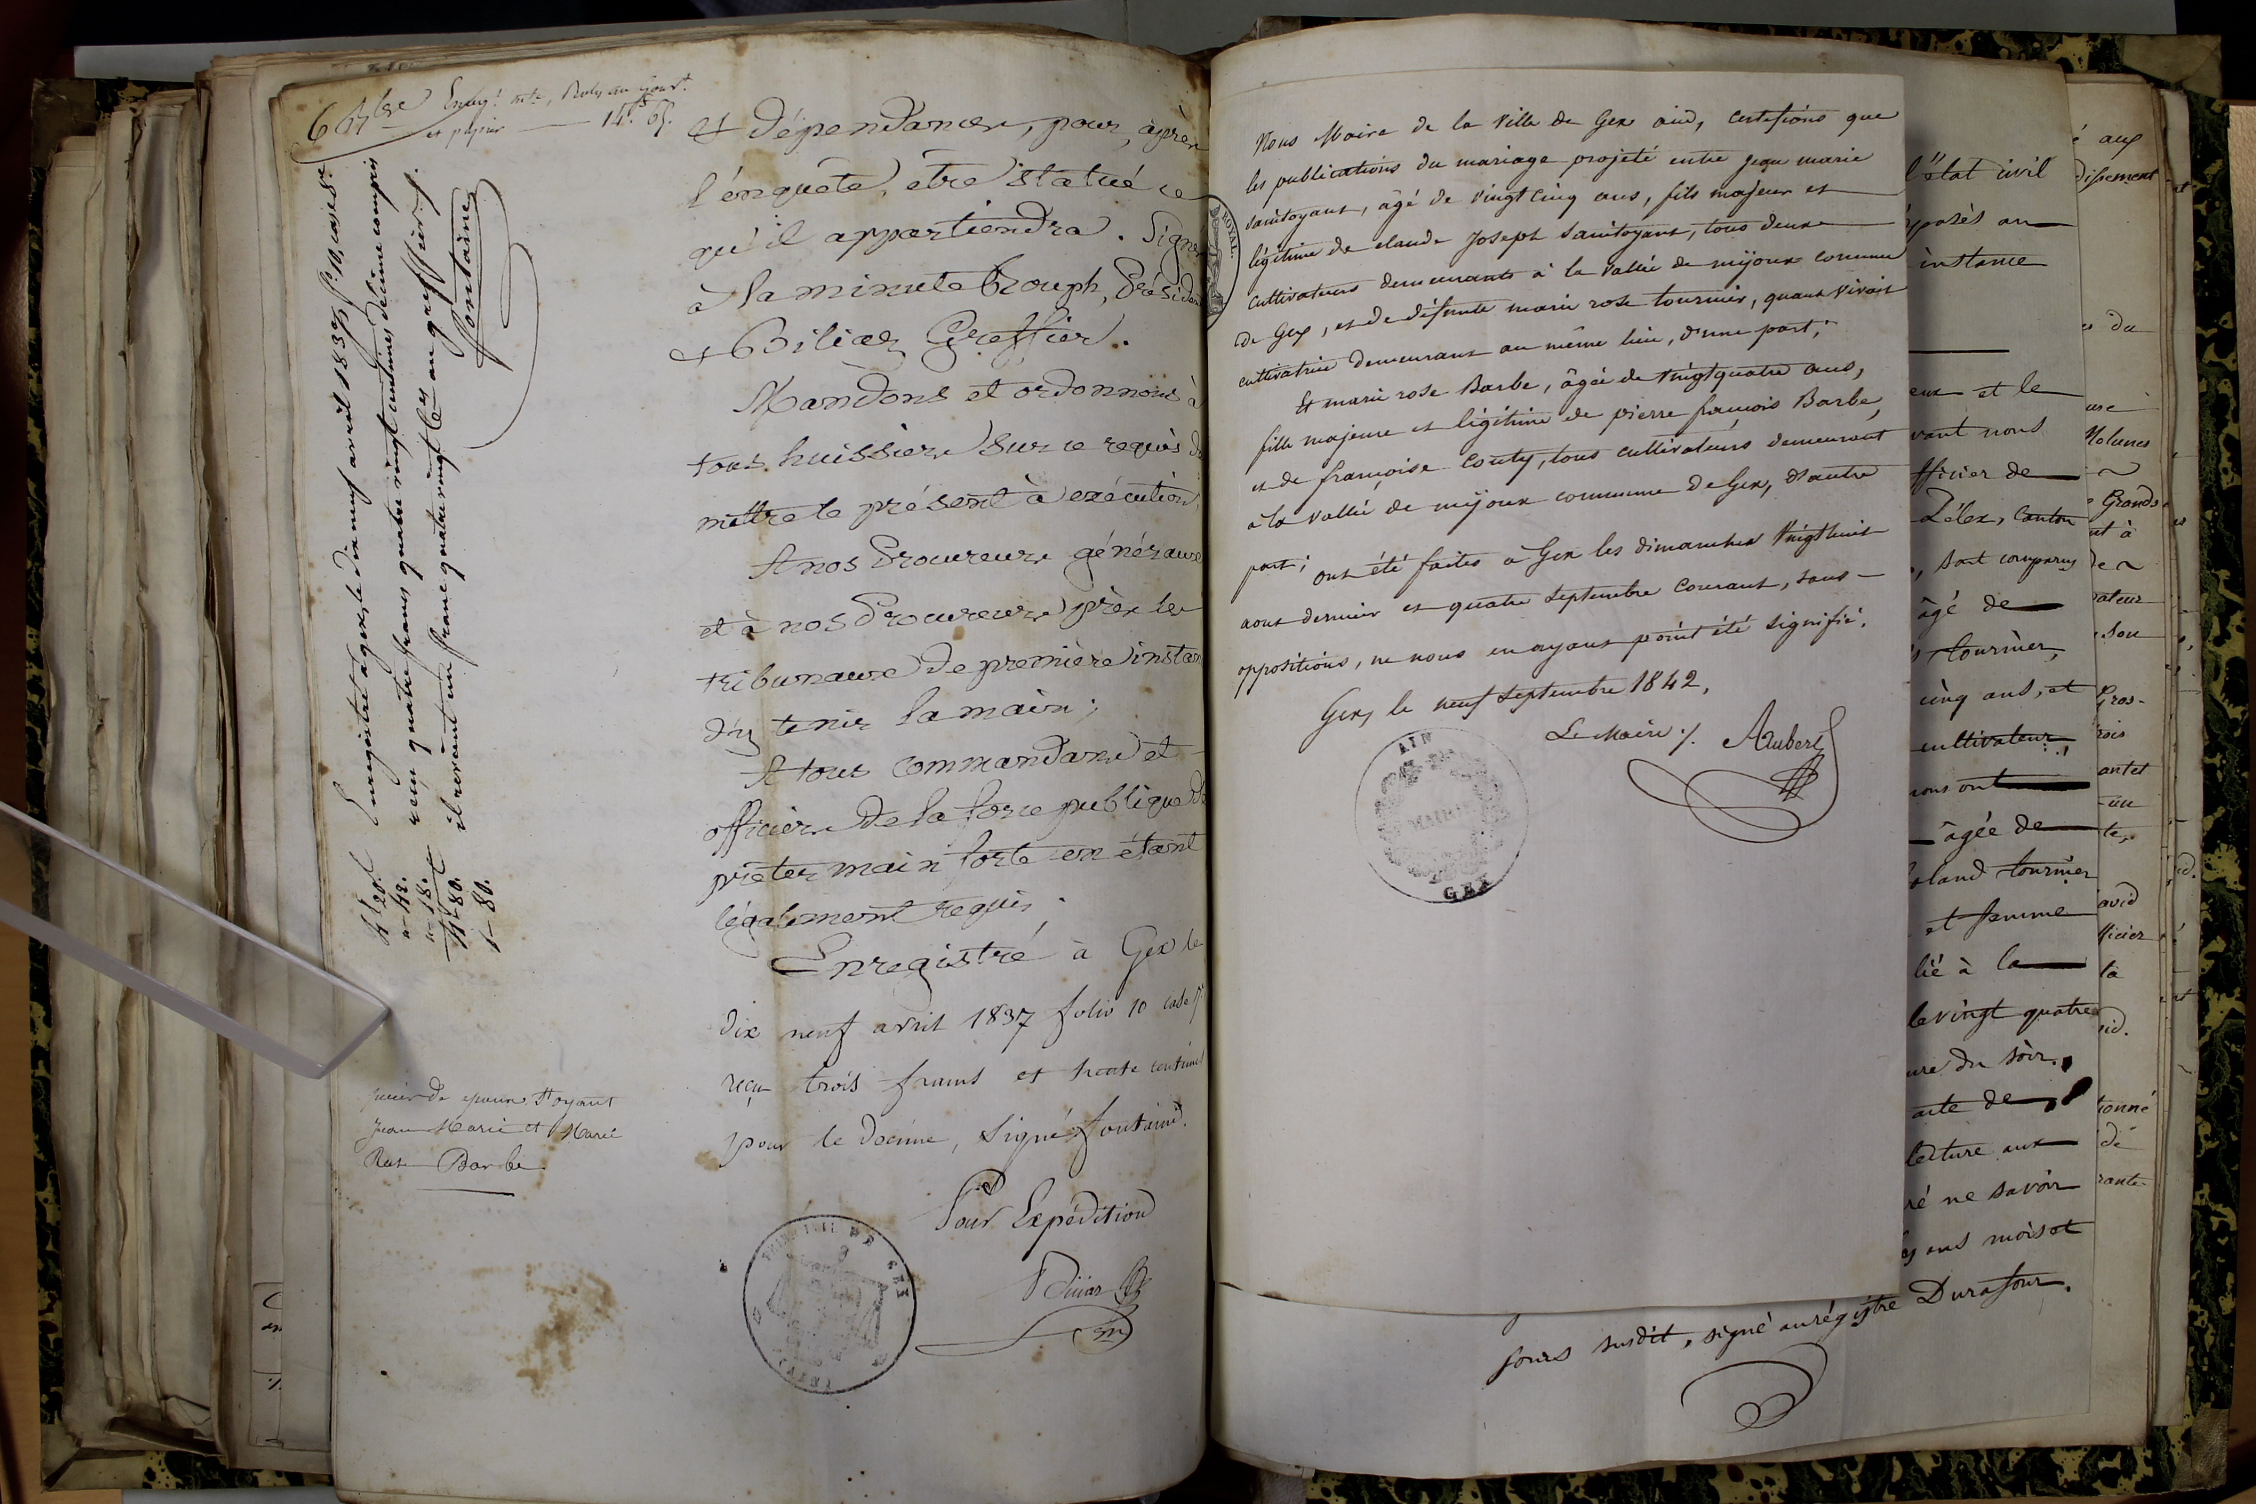 et papier — 14.f 65.
Enregistré à gex, le dix neuf avril 1837, f.o 10, case 8.e
reçu quatre francs quatre vingt centimes, décime compris
il revient un franc quatre vingt c.es au greffier ./.
fontaine
4f 20.
" - 42.
" - 18.
4f 80.
1 - 80.
et dépendances, pour, après
l'enquête, être statué ce
qu'il appartiendra. Signé
à la minute Brouph, Présiden
et Biliaz Greffier.
Mandons et ordonnons à
tous huissiers sur ce requis de
mettre le présent à exécution,
A nos Procureurs généraux
et à nos Procureurs près les
tribunaux de première instan
d'y tenir la main;
A tous commandans et
officiers de la force publique de
prêter main forte en étant
légalement requis;
Enregistré à Gex le
dix neuf avril 1837 folio 10 case
reçu trois francs et trente centimes
pour le décime, signé fontaine.
Pour Expédition
époux S.toyant
Jean Marie et Marie
Rose Barbe
TRIBUNAL DE GEX
ROYAL
Nous Maire de la Ville de Gex aind, certifions que
les publications du mariage projeté entre jean marie
Saintoyant, âgé de vingt cinq ans, fils majeur et
légitime de claude Joseph Saintoyant, tous deux
cultivateurs demeurants à la vallée de mijoux commune
de Gex, et de défunte marie rose tournier, quand vivait
cultivatrice demeurant au même lieu, d'une part;
Et marie rose Barbe, âgée de vingt quatre ans,
fille majeure et légitime de pierre françois Barbe,
et de françoise Couty, tous cultivateurs demeurant
à la vallée de mijoux commune de Gex, d'autre
part; ont été faites à Gex les dimanches vingt huit
aout dernier et quatre septembre courant, sans
oppositions, ne nous en ayant point été signifié.
Gex, le neuf septembre 1842,
Le Maire ./. Aubert
AIN
MAIRIE
GEX
l'état civil
posés au
instance
eux et le
vant nous
fficier de
Lélex, Canton
, sont comparus
âgé de
tournier,
cinq ans, et
cultivateur,
nous ont
âgée de
oland tournier
et femme
lié à la
le vingt quatre
ure du soir.
acte de
lecture aux
ré ne savoir
ans mois et
jours susdit, signé au régistre Durafour.
é aux
dissement
du
Molunes
Grands
nt à
de
vateur
son
Gros-
rois
antet
un
te,
avid
fficier
la
tionné
dé
rante